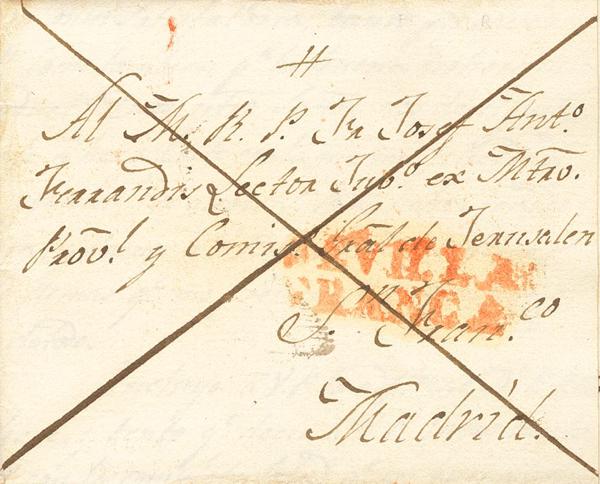 Al M. R. P. Fr Josef Ant.º
Ferrandis Lector Jub.º ex Mtrō.
Prov̄.l y Comis.º Gral de Jerusalen
SEVILLA
FRANCA
S.n Fran.co
Madrid.